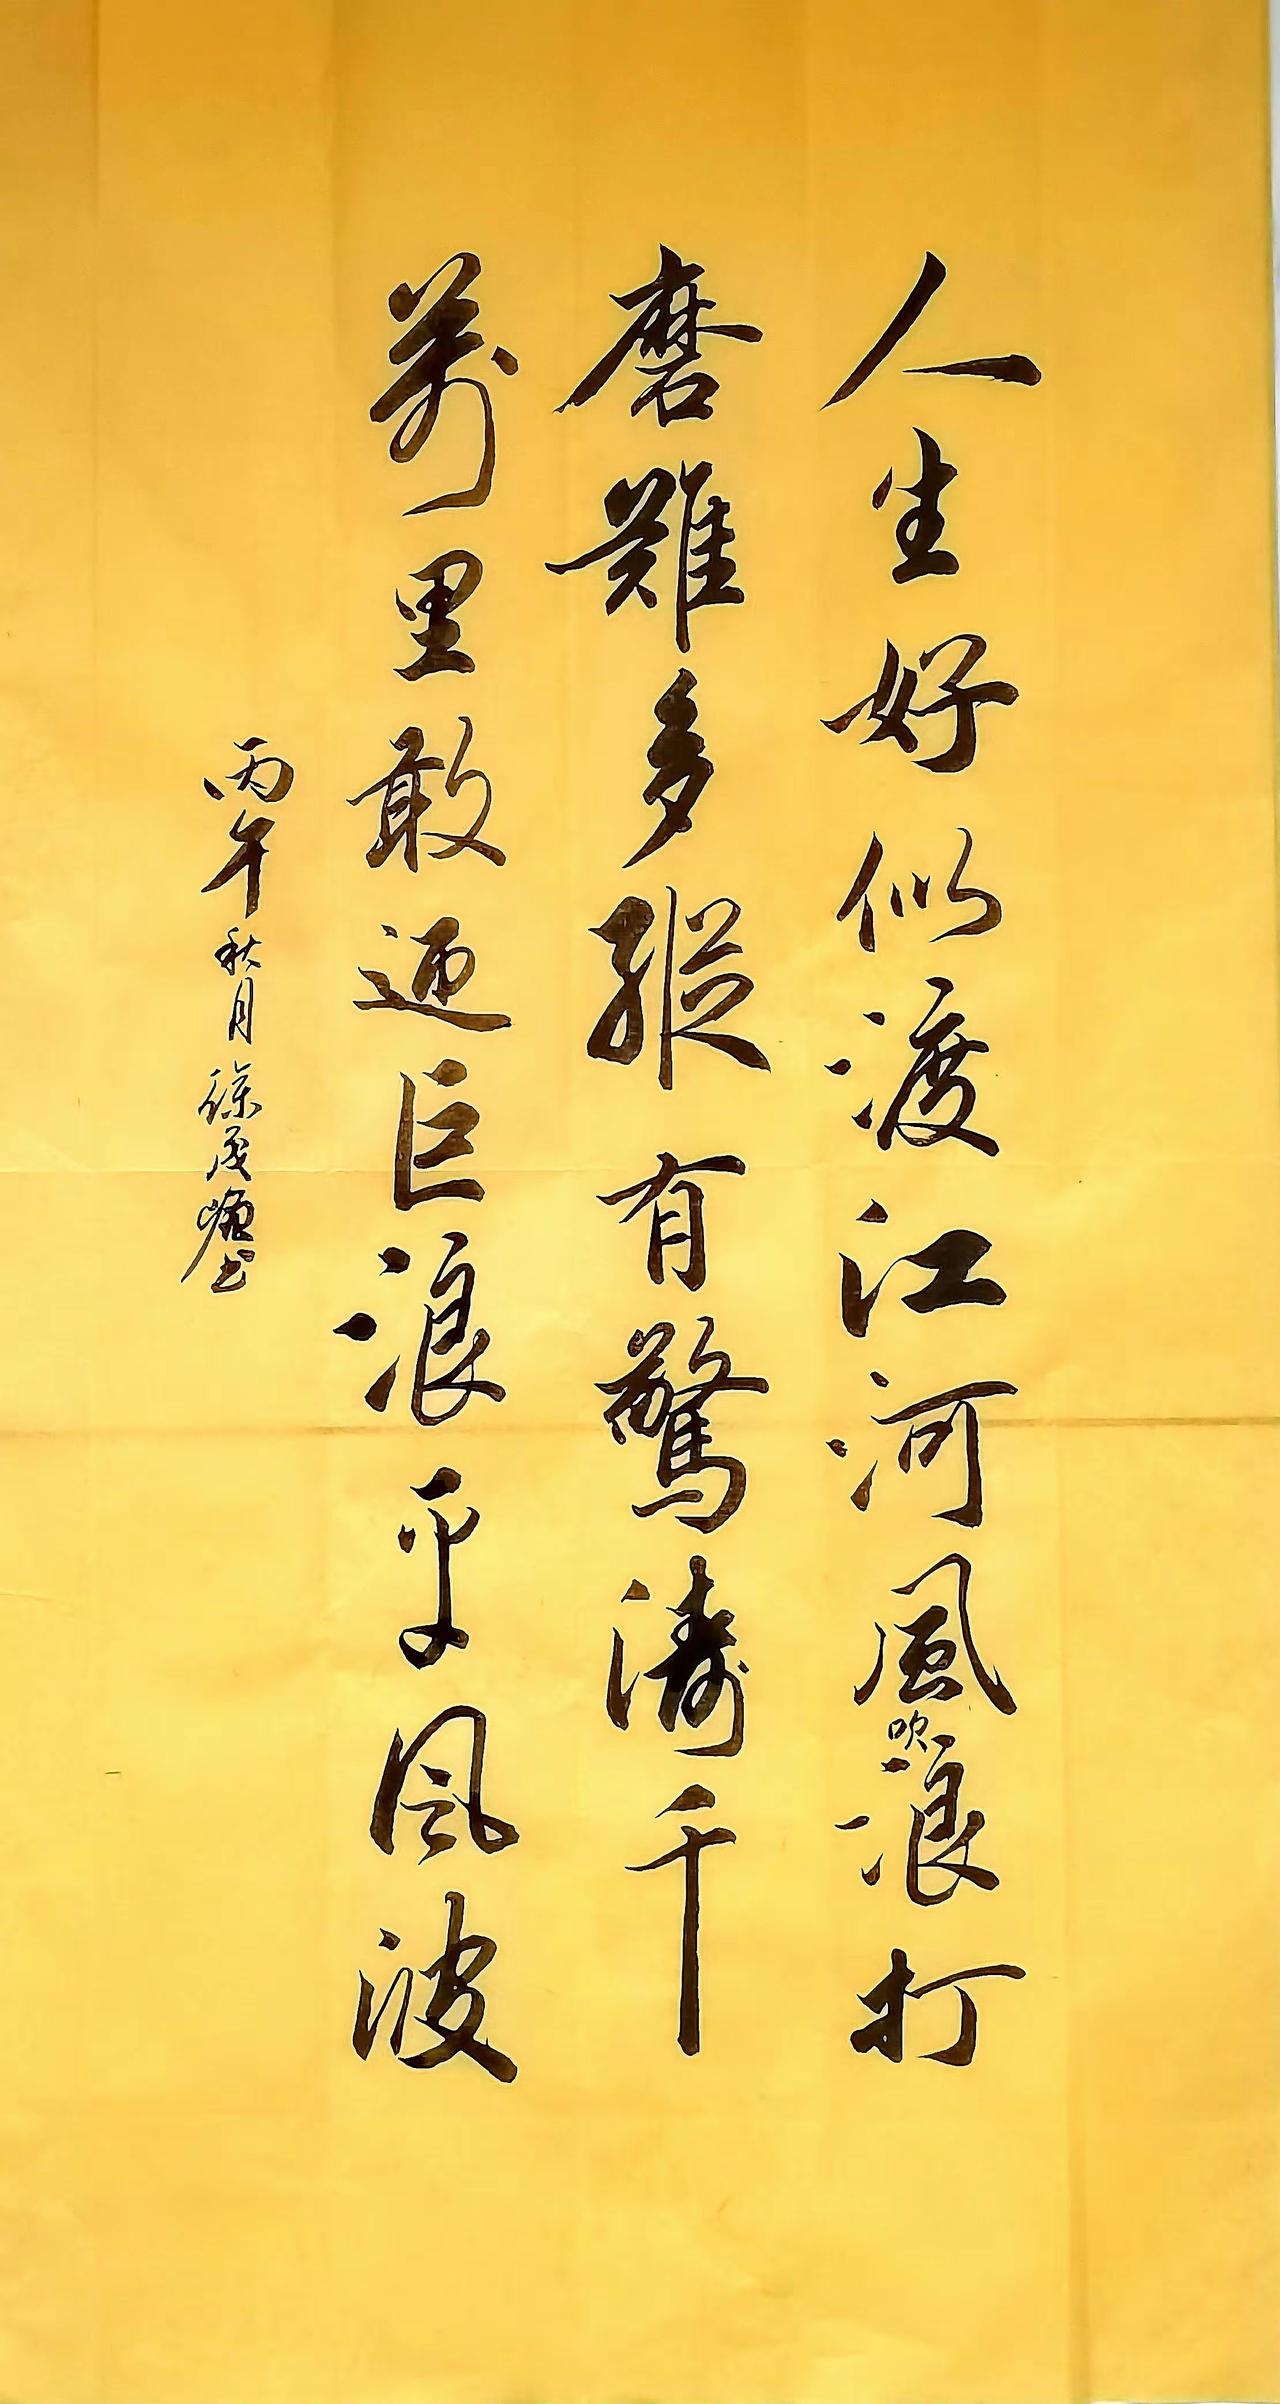 人生好似渡江河風吹浪打
磨難多縱有驚濤千
萬里敢迎巨浪平風波
丙午秋月徐茂書